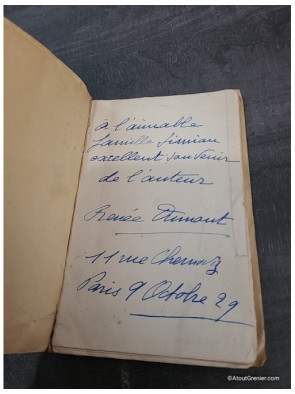 à l'aimable
famille Simian
excellent souvenir
de l'auteur
Renée
11 rue
Paris 9 Octobre 29
©AtoutGrenier.com